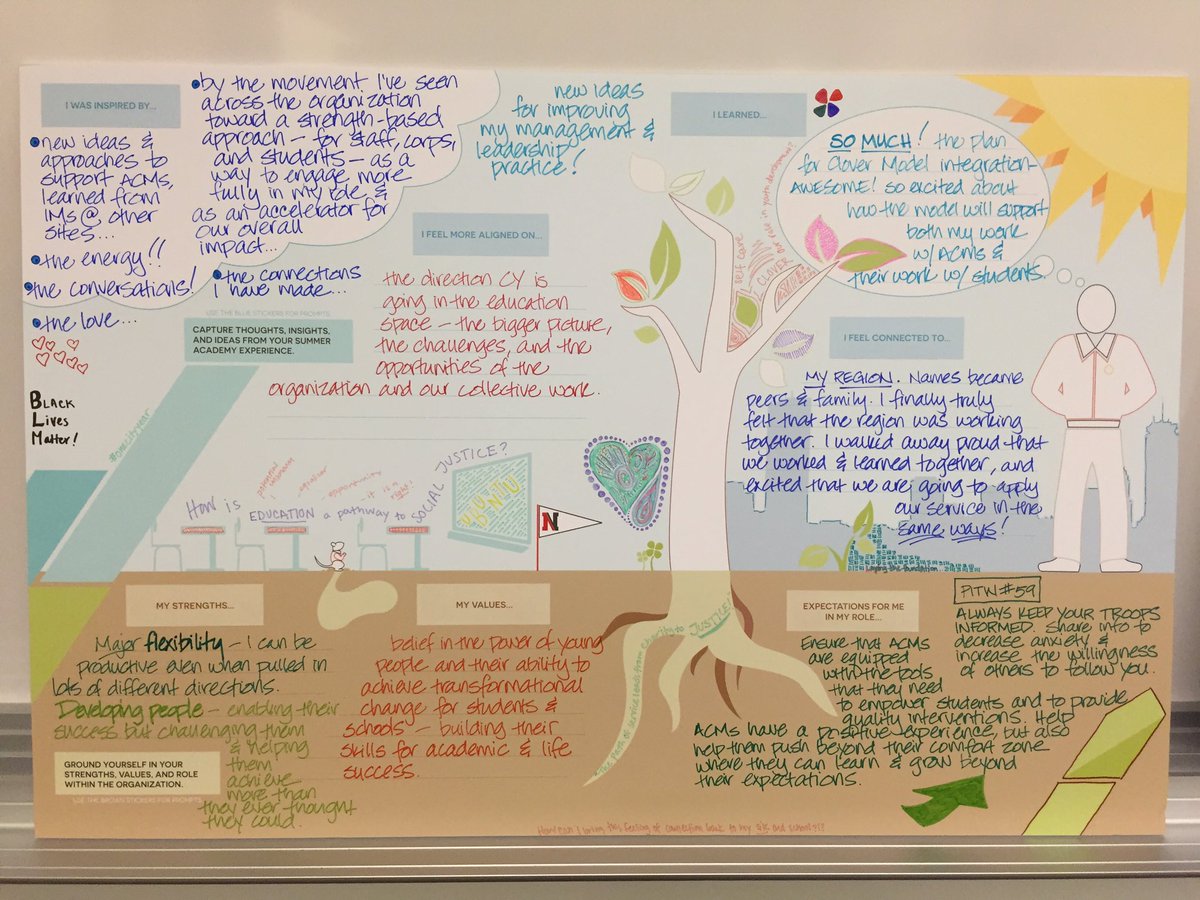 I WAS INSPIRED BY...
new ideas &
approaches to
support ACMs,
learned from
IMs @ other
sites...
the energy!!
the conversations!
the love...
by the movement I've seen
across the organization
toward a strength-based
approach - for staff, corps,
and students - as a
way to engage more
fully in my role &
as an accelerator for
our overall
impact...
the connections
I have made...
USE THE BLUE STICKERS FOR PROMPTS
CAPTURE THOUGHTS, INSIGHTS,
AND IDEAS FROM YOUR SUMMER
ACADEMY EXPERIENCE.
BLACK
LIVES
MATTER!
#onecityyear
new ideas
for improving
my management &
leadership
practice!
I LEARNED...
SO MUCH! the plan
for Clover Model integration-
AWESOME! so excited about
how the model will support
both my work
w/ ACMs &
their work w/ students.
I FEEL MORE ALIGNED ON...
the direction CY is
going in the education
space - the bigger picture,
the challenges, and the
opportunities of the
organization and our collective work.
self care
CLOVER
I FEEL CONNECTED TO...
MY REGION. Names became
peers & family. I finally truly
felt that the region was working
together. I walked away proud that
we worked & learned together, and
excited that we are going to apply
our service in the
same ways!
How is EDUCATION a pathway to SOCIAL JUSTICE?
N
Laying the foundation...
MY STRENGTHS...
Major flexibility - I can be
productive even when pulled in
lots of different directions.
Developing people - enabling their
success but challenging them
& helping
them
achieve
more than
they ever thought
they could.
GROUND YOURSELF IN YOUR
STRENGTHS, VALUES, AND ROLE
WITHIN THE ORGANIZATION.
USE THE BROWN STICKERS FOR PROMPTS
MY VALUES...
belief in the power of young
people and their ability to
achieve transformational
change for students &
schools - building their
skills for academic & life
success.
The Path of service leads from Charity to JUSTICE!
EXPECTATIONS FOR ME
IN MY ROLE...
Ensure that ACMs
are equipped
with the tools
that they need
to empower students and to provide
quality interventions. Help
ACMs have a positive experience, but also
help them push beyond their comfort zone
where they can learn & grow beyond
their expectations.
PITW #59
ALWAYS KEEP YOUR TROOPS
INFORMED. Share info to
decrease anxiety &
increase the willingness
of others to follow you.
How can I bring this feeling of connection back to my site and school?!?